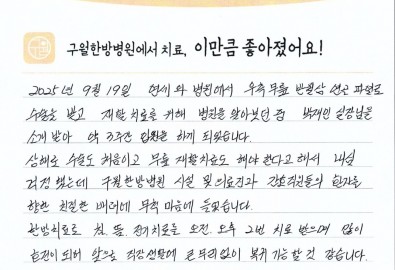 구월한방병원에서 치료, 이만큼 좋아졌어요!
2025년 9월 19일 연세 와 병원에서 우측 무릎 반월상 연골 파열로
수술을 받고 재활 치료를 위해 병원을 알아보던 중 박재민 실장님을
소개 받아 약 3주간 입원을 하게 되었습니다.
상해로 수술도 처음이고 무릎 재활치료도 해야 한다고 해서 내심
걱정 했는데 구월한방병원 시설 및 의료진과 간호직원들의 환자를
향한 친절한 배려에 무척 마음에 들었습니다.
한방치료로 침, 뜸, 전기치료등 오전, 오후 2번 치료 받으며 많이
호전이 되어 앞으로 직장생활에 큰 무리없이 복귀 가능할 것 같습니다.